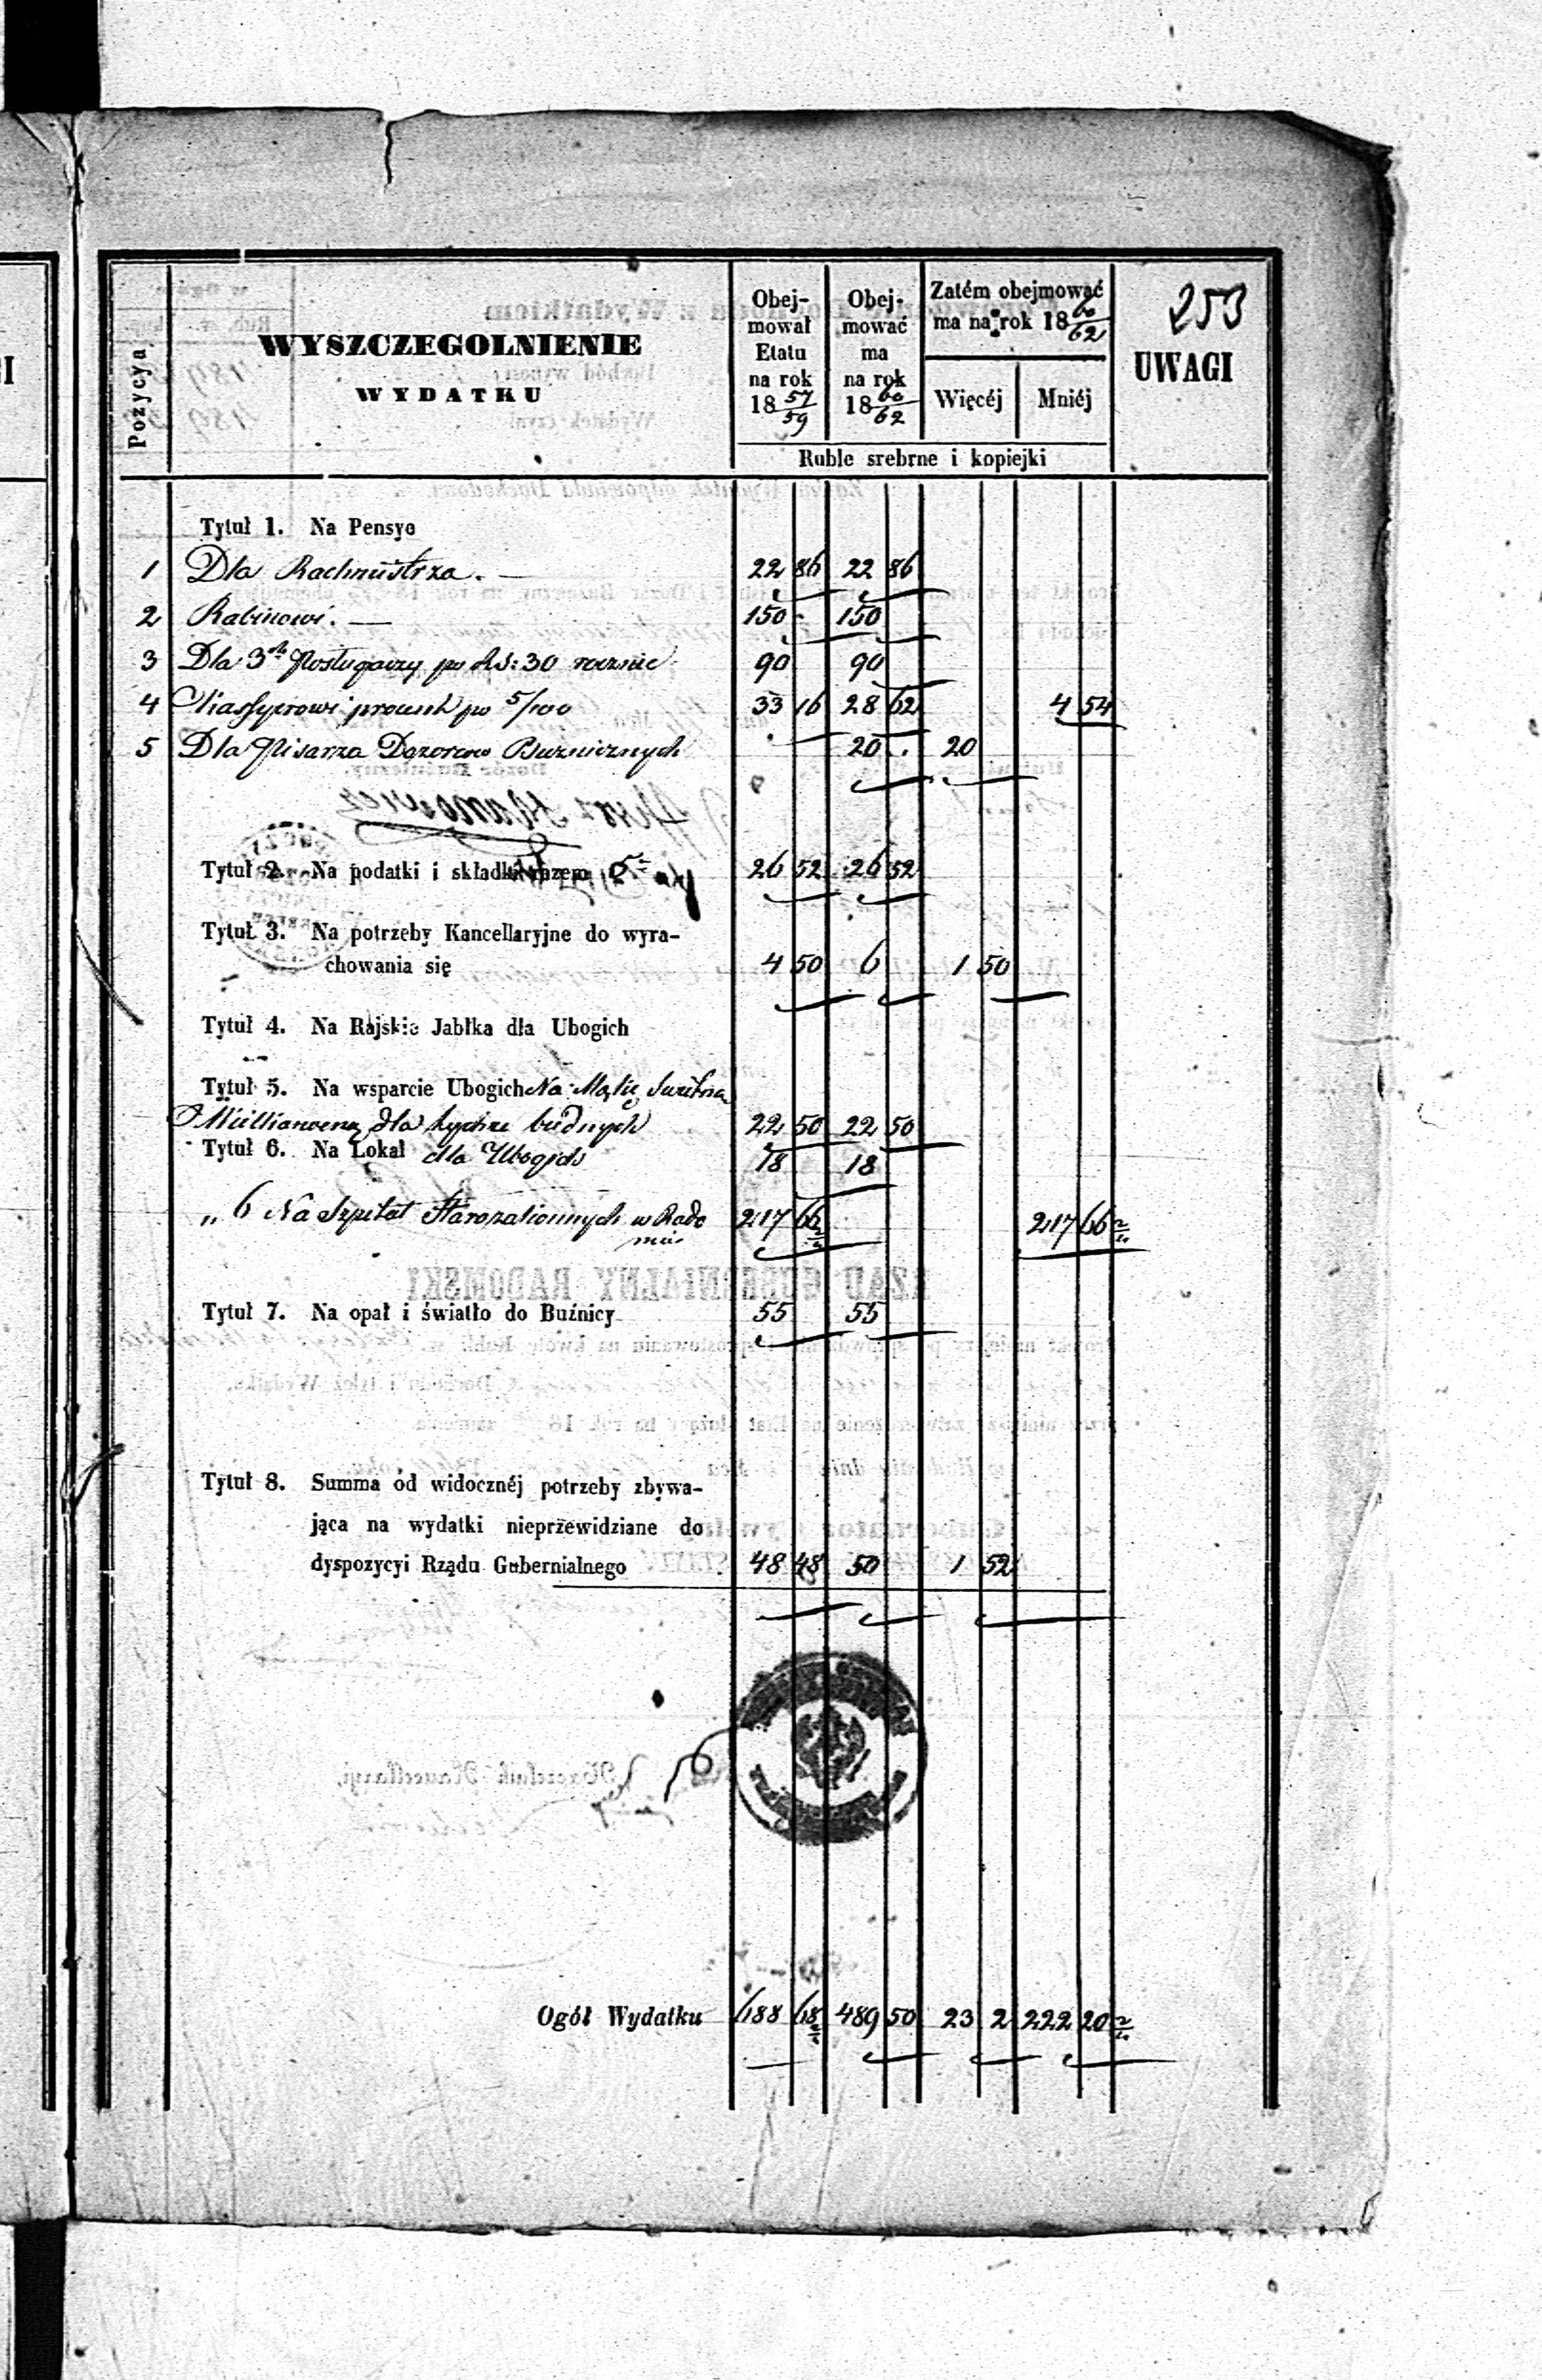 253
Pozycya
WYSZCZEGOLNIENIE
WYDATKU
Obej-
mował
Etatu
na rok
18 57/59
Obej-
mować
ma
na rok
18 60/62
Zatém obejmować
ma na rok 18 60/62
Więcéj
Mniéj
UWAGI
Ruble srebrne i kopiejki
Tytuł 1. Na Pensye
1 Dla Rachmistrza. — 22 86 22 86
2 Rabinowi. — 150 - 150
3 Dla 3ch Posługaczy po RS: 30 rocznie. 90 90
4 Kassyerowi procent po 5/100 33 16 28 62 4 54
5 Dla Pisarza Dozorow Buznicznych 20 . 20
Tytuł 2. Na podatki i składki razem 26 52 26 52
Tytuł 3. Na potrzeby Kancellaryjne do wyra-
chowania się 4 50 6 1 50
Tytuł 4. Na Rajskie Jabłka dla Ubogich
Tytuł 5. Na wsparcie Ubogich Na Mąkę
dla tychże biednych 22 50 22 50
Tytuł 6. Na Lokal dla Ubogich 18 18
„ 6 Na Szpital Starozakonnych w Rado
miu 217 66 217 66
Tytuł 7. Na opał i światło do Buźnicy 55 55
Tytuł 8. Summa od widocznéj potrzeby zbywa-
jąca na wydatki nieprzewidziane do
dyspozycyi Rządu Gubernialnego 48 48 50 1 52
Ogół Wydatku 688 68 489 50 23 2 222 20